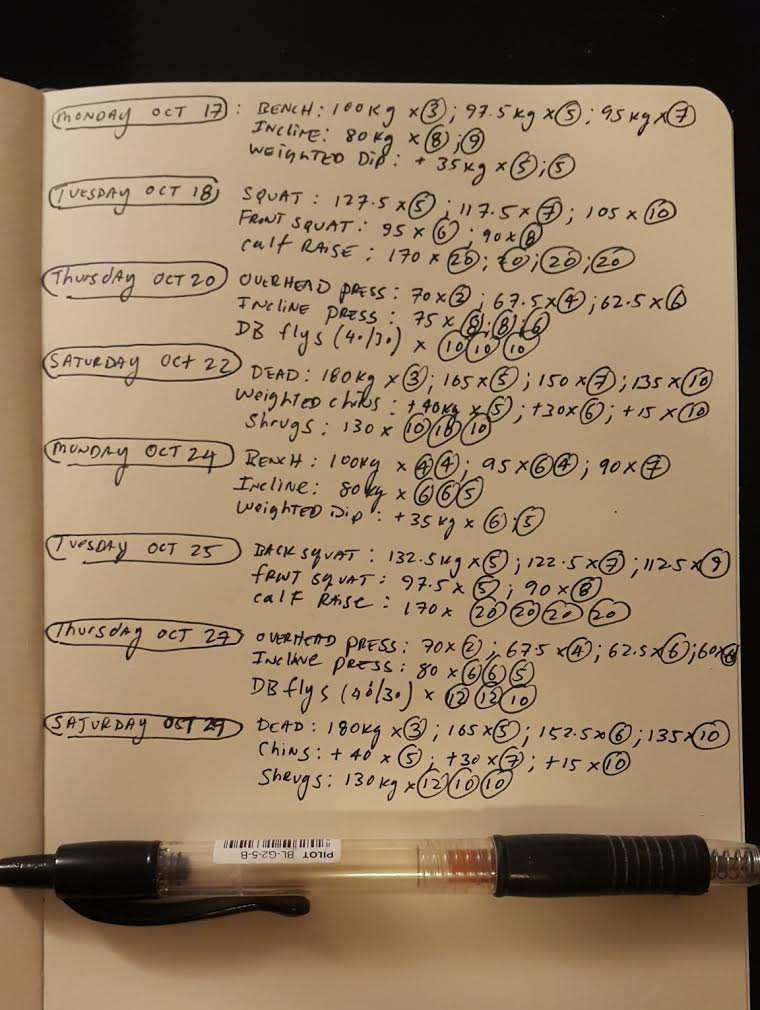 MONDAY OCT 17 : BENCH : 100Kg × 3 ; 97.5 kg × 5 ; 95 kg × 7
INCLINE : 80 kg × 8 ; 9
WEIGHTED DIP : + 35kg × 5 ; 5
TUESDAY OCT 18 SQUAT : 127.5 × 5 ; 117.5 × 7 ; 105 × 10
FRONT SQUAT : 95 × 6 ; 90 × 8
calf RAISE : 170 × 20 ; 20 ; 20 ; 20
Thursday OCT 20 OVERHEAD PRESS : 70 × 2 ; 67.5 × 4 ; 62.5 × 6
INCLINE PRESS : 75 × 8 ; 8 ; 6
DB flys (40/30) × 10 10 10
SATURDAY OCT 22 DEAD : 180kg × 3 ; 165 × 5 ; 150 × 7 ; 135 × 10
Weighted chins : +40kg × 5 ; +30 × 6 ; +15 × 10
Shrugs : 130 × 10 10 10
MONDAY OCT 24 BENCH : 100kg × 4 4 ; 95 × 6 4 ; 90 × 7
Incline : 80kg × 6 6 5
Weighted Dip : +35 kg × 6 ; 5
TUESDAY OCT 25 BACK SQUAT : 132.5kg × 5 ; 122.5 × 7 ; 112.5 × 9
FRONT SQUAT : 97.5 × 5 ; 90 × 8
calf RAISE : 170 × 20 20 20 20
Thursday OCT 27 OVERHEAD PRESS : 70 × 2 ; 67.5 × 4 ; 62.5 × 6 ; 60 ×
Incline PRESS : 80 × 6 6 5
DB flys (40/30) × 12 12 10
SATURDAY OCT 29 DEAD : 180kg × 3 ; 165 × 5 ; 152.5 × 6 ; 135 × 10
Chins : + 40 × 5 ; +30 × 7 ; +15 × 10
Shrugs : 130 kg × 12 10 10
PILOT BL-G2-5-B